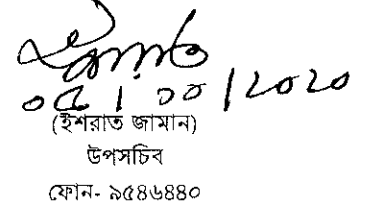 ০৫/১০/২০২০
(ইশরাত জামান)
উপসচিব
ফোন- ৯৫৪৬৪৪০